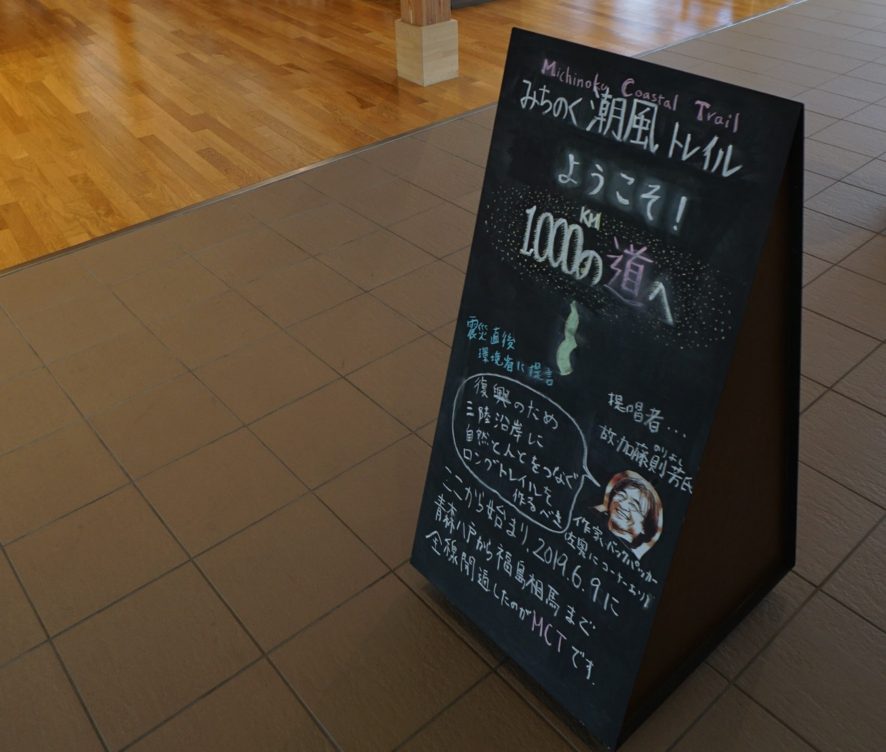 Michinoku Coastal Trail
みちのく潮風トレイル
ようこそ!
1,000KMの道へ
震災直後
環境省に提言
復興のため
三陸沿岸に
自然と人とをつなぐ
ロングトレイルを
作るべき
提唱者...
故加藤則芳氏
のりよし
作家、バックパッカー
左奥にコーナーあり
ここから始まり、2019.6.9に
青森八戸から福島相馬まで
全線開通したのがMCTです.